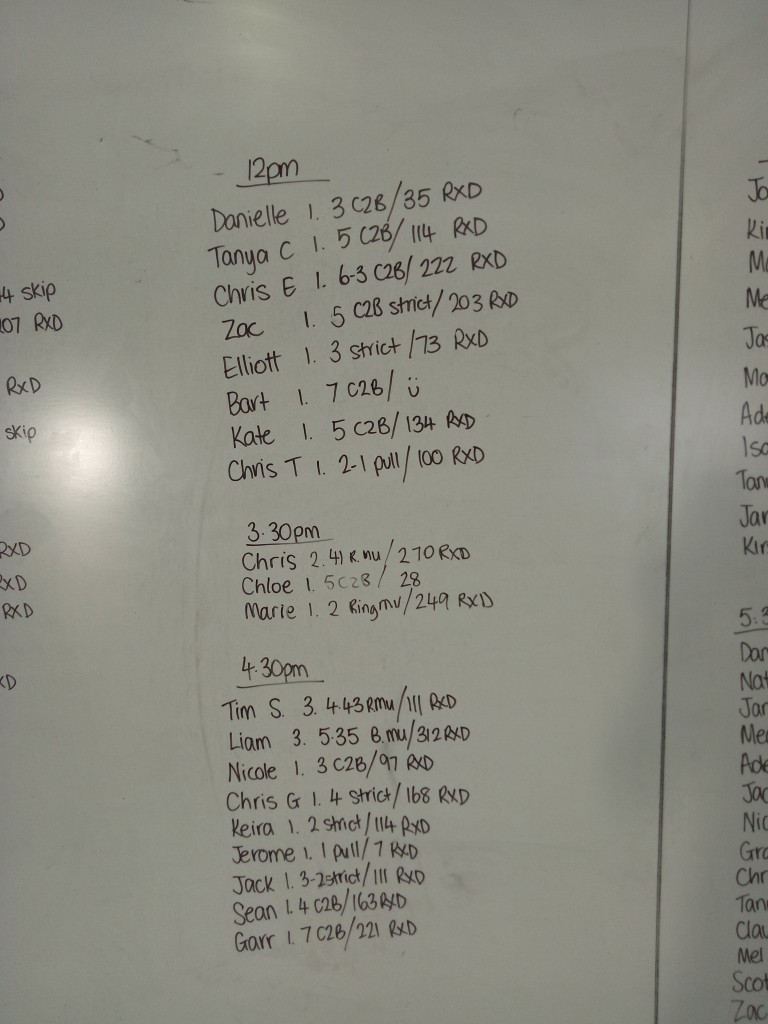 4 skip
107 RXD
RXD
skip
RXD
RXD
RXD
12pm
Danielle 1. 3 C2B/35 RXD
Tanya C 1. 5 C2B/ 114 RXD
Chris E 1. 6-3 C2B/ 222 RXD
Zac 1. 5 C2B strict/203 RXD
Elliott 1. 3 strict /73 RXD
Bart 1. 7 C2B/ ü
Kate 1. 5 C2B/ 134 RXD
Chris T 1. 2-1 pull/100 RXD
3.30pm
Chris 2. R.mu/270 RXD
Chloe 1. 5C2B/ 28
Marie 1. 2 Ringmu/249 RXD
4.30pm
Tim S. 3. 4.43 Rmu/111 RXD
Liam 3. 5.35 B.mu/312 RXD
Nicole 1. 3 C2B/97 RXD
Chris G 1. 4 strict/168 RXD
Keira 1. 2 strict/114 RXD
Jerome 1. 1 pull/ 7 RXD
Jack 1. 3-2 strict/111 RXD
Sean 1. 4 C2B/163 RXD
Garr 1. 7 C2B/221 RXD
Jo
Kir
Me
Jas
Ade
Isa
Tan
Jar
Kir
5:3
Dan
Nat
Jar
Mee
Ade
Jac
Nic
Gra
Chr
Tan
Clau
Mel
Scot
Zac